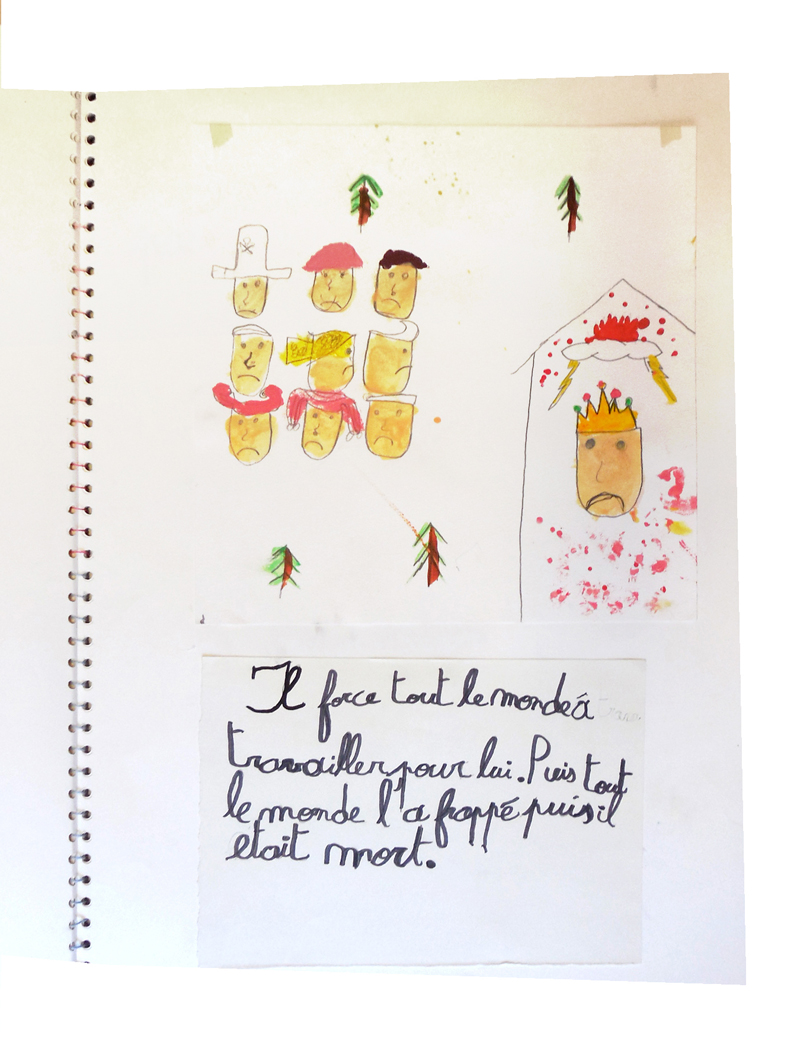 Il force tout le monde à
travailler pour lui. Puis tout
le monde l'a frappé puis il
était mort.